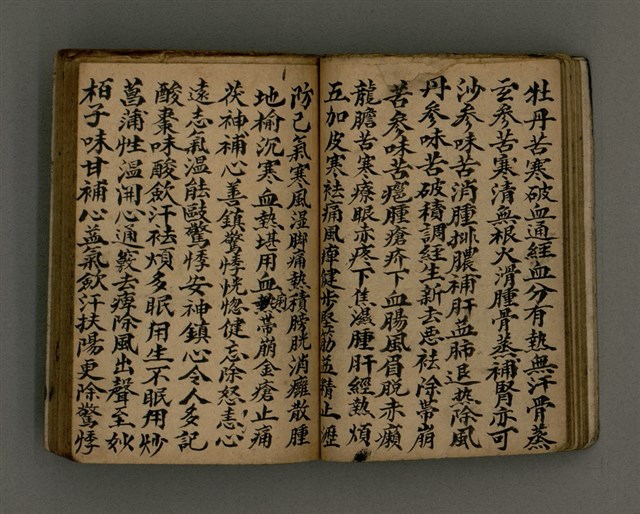 牡丹苦寒破血通經血分有熱無汗骨蒸
玄參苦寒清無根火消腫骨蒸補腎亦可
沙參味苦消腫排膿補肝益肺退热除風
丹參味苦破積調經生新去惡祛除帶崩
苦參味苦癰腫瘡疥下血腸風眉脱赤癩
龍膽苦寒療眼赤疼下焦濕腫肝經热煩
五加皮寒祛痛風痺健步堅筋益精止瀝
防己氣寒風湿脚痛熱積膀胱消癰散腫
地榆沉寒血熱堪用血痢帶崩金瘡止痛
茯神補心善鎮驚悸恍惚健忘除怒恚心
遠志氣温能敺驚悸安神鎮心令人多記
酸棗味酸歛汗祛煩多眠用生不眠用炒
菖蒲性温開心通竅去痺除風出聲至妙
栢子味甘補心益氣歛汗扶陽更除驚悸